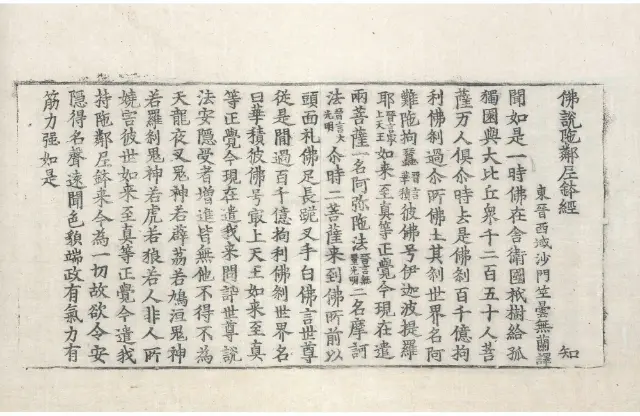 佛說陁鄰尼鉢經 知
東晉西域沙門竺曇無蘭譯
聞如是一時佛在舍衛國祇樹給孤
獨園與大比丘衆千二百五十人菩
薩万人俱尒時去是佛剎百千億拘
利佛剎過尒所佛土其剎世界名阿
難陁拘蠶晉言華積彼佛号伊迦波提羅
耶晉言冣上天王如来至真等正覺今現在遣
兩菩薩一名阿弥陁法晉言無量光明二名摩訶
法晉言大光明尒時二菩薩来到佛所前以
頭面礼佛足長跪叉手白佛言世尊
從是間過百千億拘利佛剎世界名
曰華積彼佛号冣上天王如来至真
等正覺今現在遣我来問訊世尊說
法安隱受者增進皆無他不得不為
天龍夜叉鬼神若薜荔若鳩洹鬼神
若羅剎鬼神若虎若狼若人非人所
嬈害彼世如来至真等正覺今遣我
持陁鄰尼鉢来今為一切故欲令安
隱得名聲遠聞色貌端政有氣力有
筋力强如是